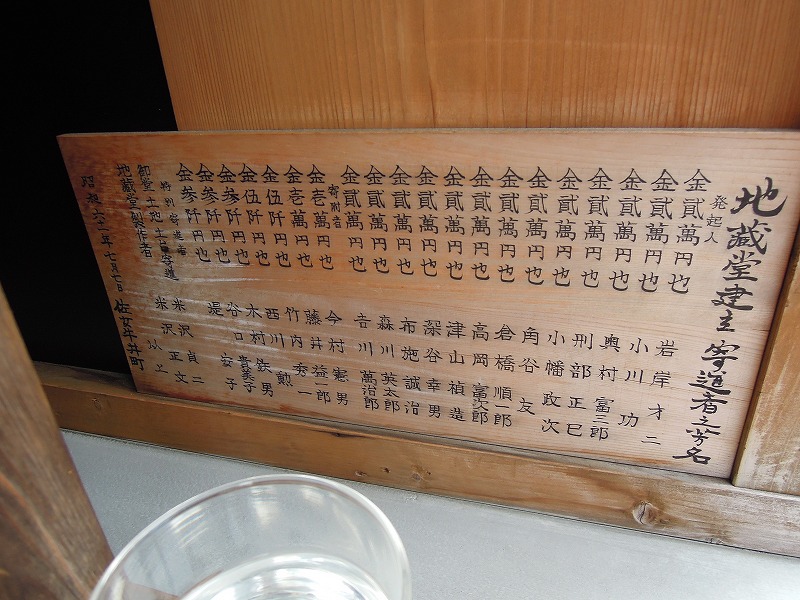 地蔵堂建立 寄進者之芳名
発起人
金貳萬円也 岩岸才二
金貳萬円也 小川功
金貳萬円也 奥村富三郎
金貳萬円也 刑部正巳
金貳萬円也 小幡政次
金貳萬円也 角谷友
金貳萬円也 倉橋順一郎
金貳萬円也 高岡富次郎
金貳萬円也 津山禎造
金貳萬円也 深谷幸男
金貳萬円也 布施誠治
金貳萬円也 森川英太郎
金貳萬円也 吉川萬治郎
寄附者
金壱萬円也 今村憲男
金壱萬円也 藤井益一郎
金伍阡円也 竹内秀一
金伍阡円也 西川勲
金参阡円也 木村鉄男
金参阡円也 谷口貴美子
金参阡円也 堤安子
特別寄進者
御堂土地土台寄進 米沢貞二
地蔵堂製作者 米沢正文
以上
昭和六一年七月七日 佐女牛井町